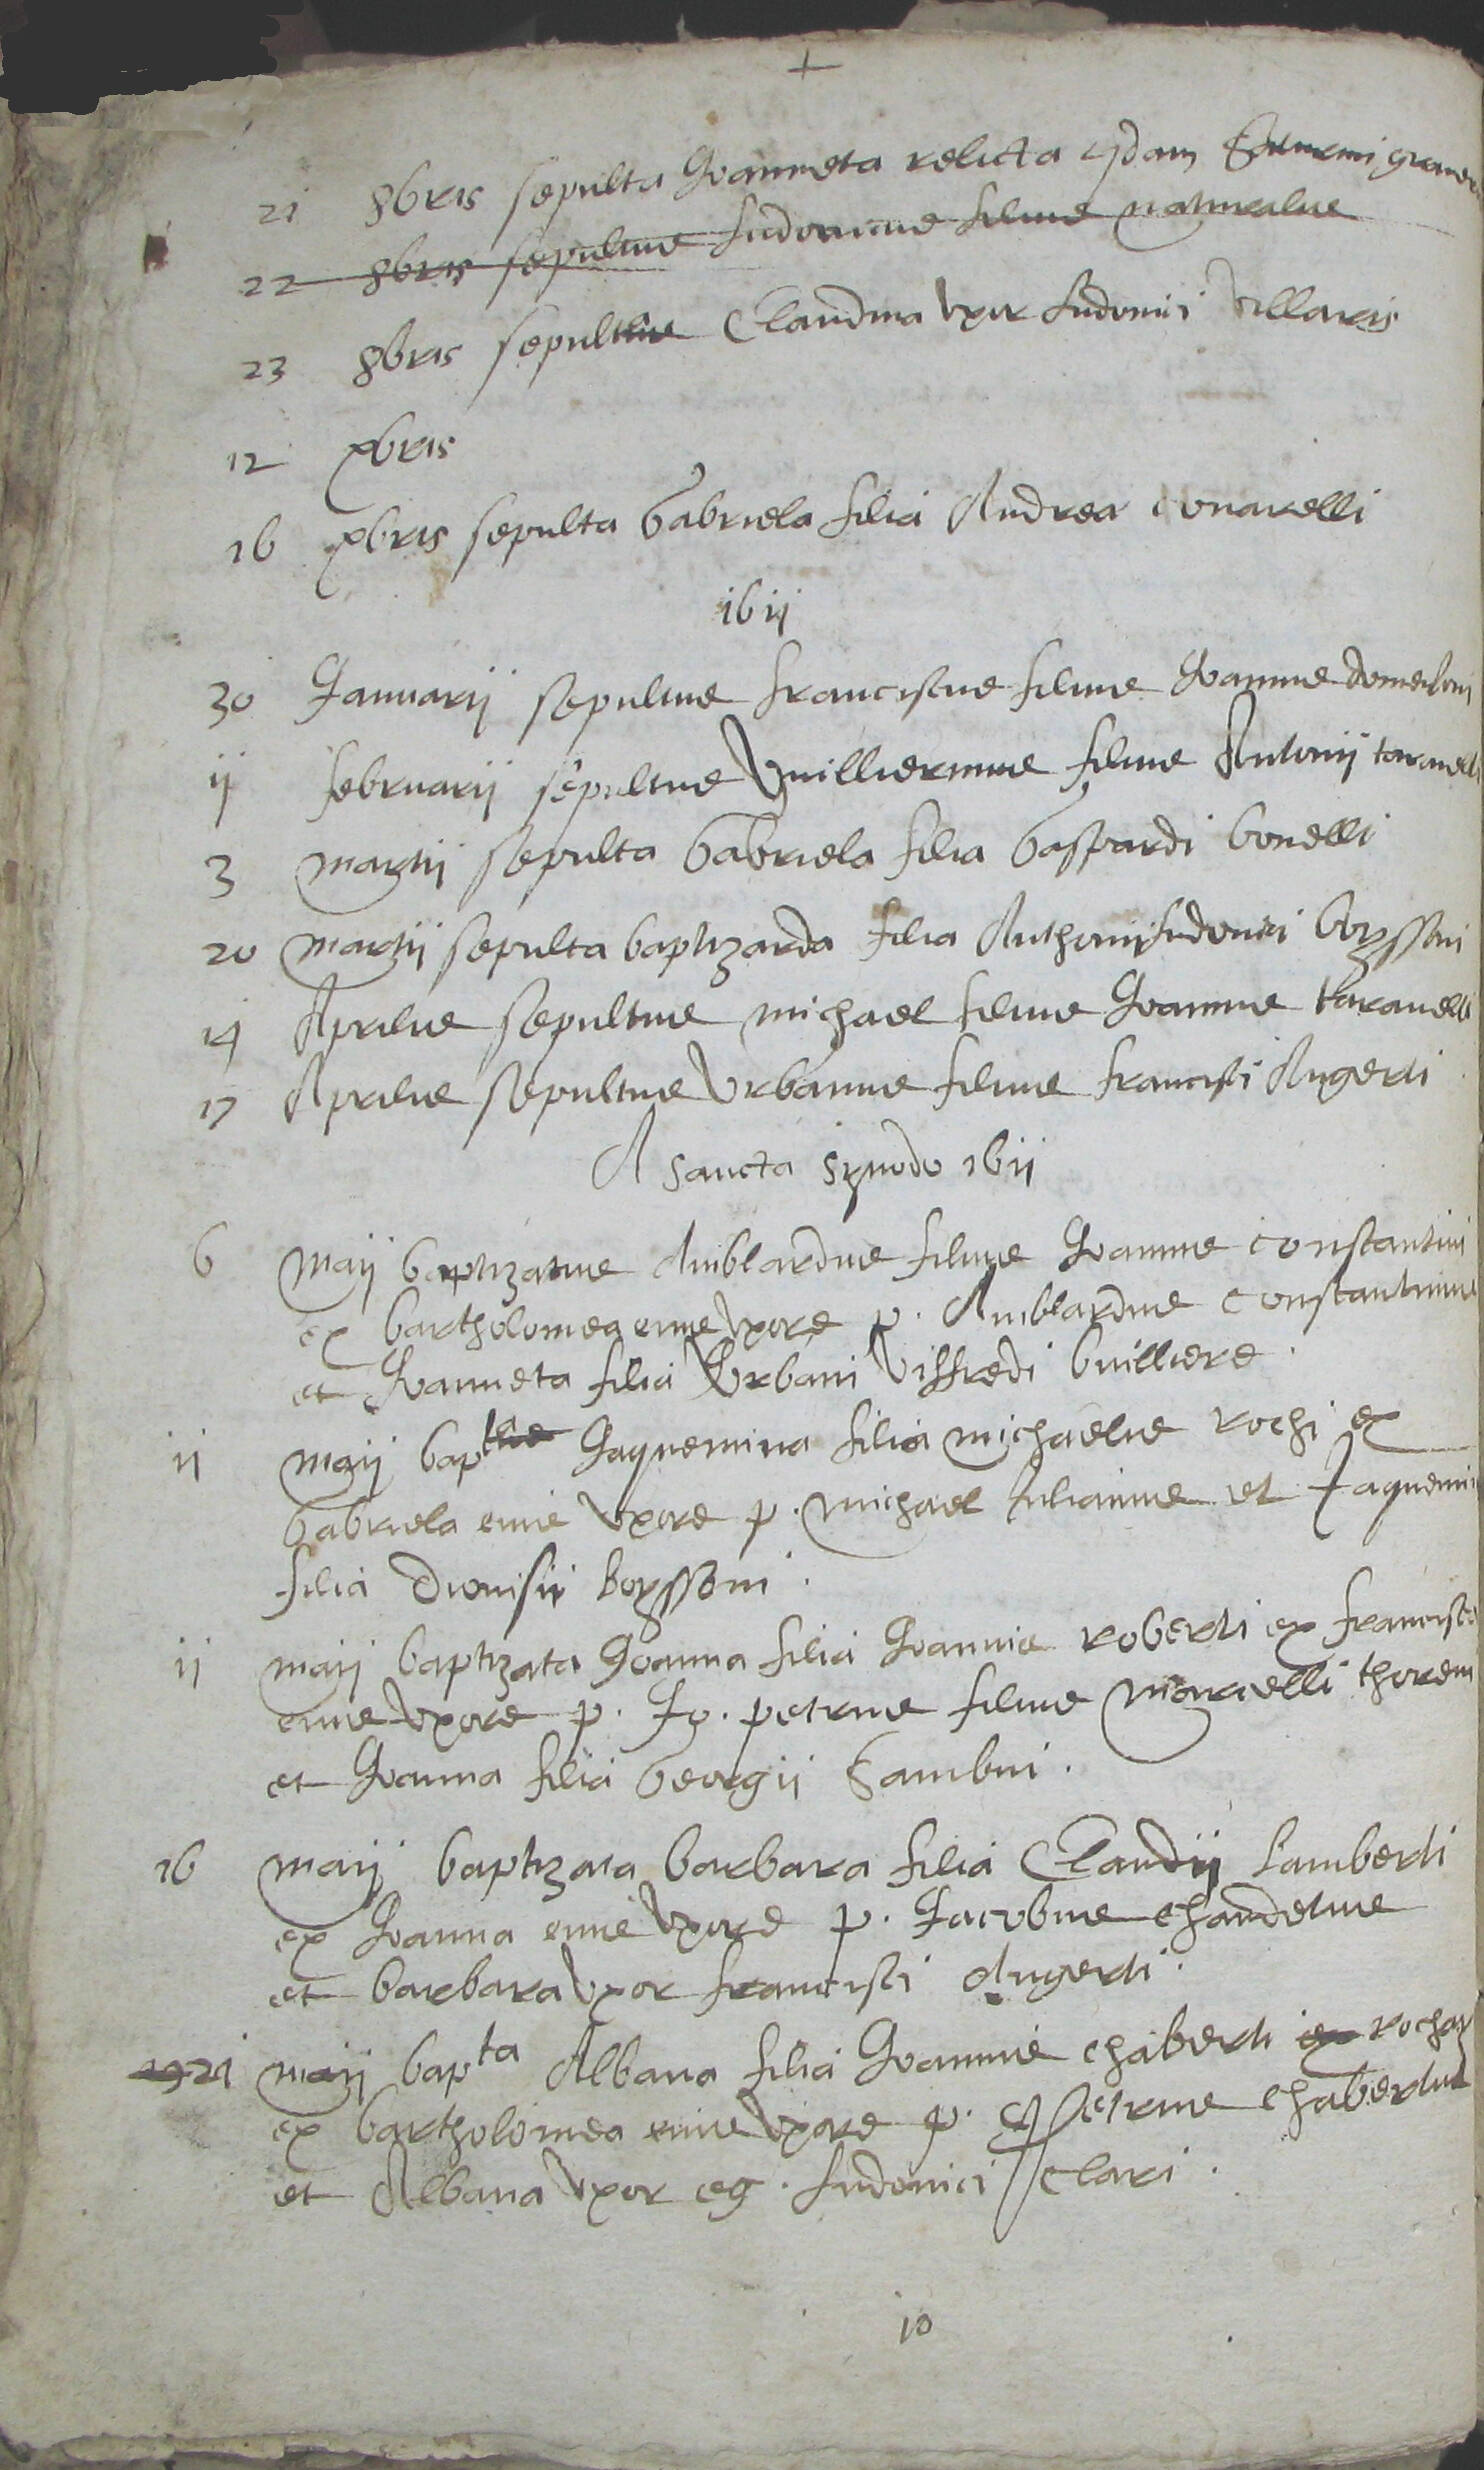 +
21 8bris sepulta Joanneta relicta qdam
22 8bris sepultus Ludovicus filius naturalis
23 8bris sepulta Claudina uxor Ludovici Villaris
12 xbris
16 xbris sepulta Gabriela filia Andrea Conarelli
1611
30 Januarij sepultus franciscus filius Joannis
ij februarij sepultus Vuilliermus filius Antonij taravelli
3 martij sepulta Gabriela filia Gaspardi bonelli
20 martij sepulta baptizarda filia Anthonij Ludovici boyssoni
14 Aprilis sepultus michael filius Joannis taravelli
17 Aprilis sepultus Urbanus filius francisci Augerti
A sancta synodo 1611
6 maij baptizatus Amblardus filius Joannis constantini
ex bartholomea eius uxore p. Amblardus constantinus
et Joanneta filia Urbani Viffredi builliere.
11 maij bap Jaquemina filia michaelis rochi ex
Gabriela eius uxore p. michael Julianus et Jaquemi
filia dionisii boyssoni.
11 maij baptizata Joanna filia Joannis roberti ex francisca
eius uxore p. Jo. petrus filius marcelli
et Joanna filia Georgii Sambui.
16 maij baptizata barbara filia Claudij Lamberti
ex Joanna eius uxore p. Jacobus chaudetus
et barbara uxor francisci Augerti.
21 maij bapta Albana filia Joannis chaberti ex
ex bartholomea eius uxore p. Petrus chabertus
et Albana uxor eg. Ludovici Clari.
10